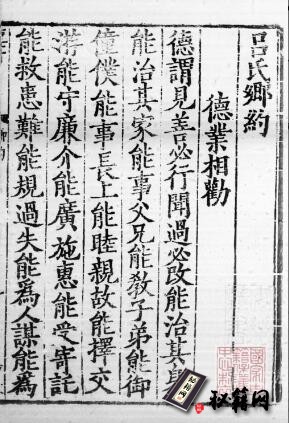 呂氏鄉約
德業相勸
德謂見善必行聞過必改能治其身
能治其家能事父兄能教子弟能御
僮僕能事長上能睦親故能擇交
游能守廉介能廣施惠能受寄託
能救患難能規過失能為人謀能為
秘籍网